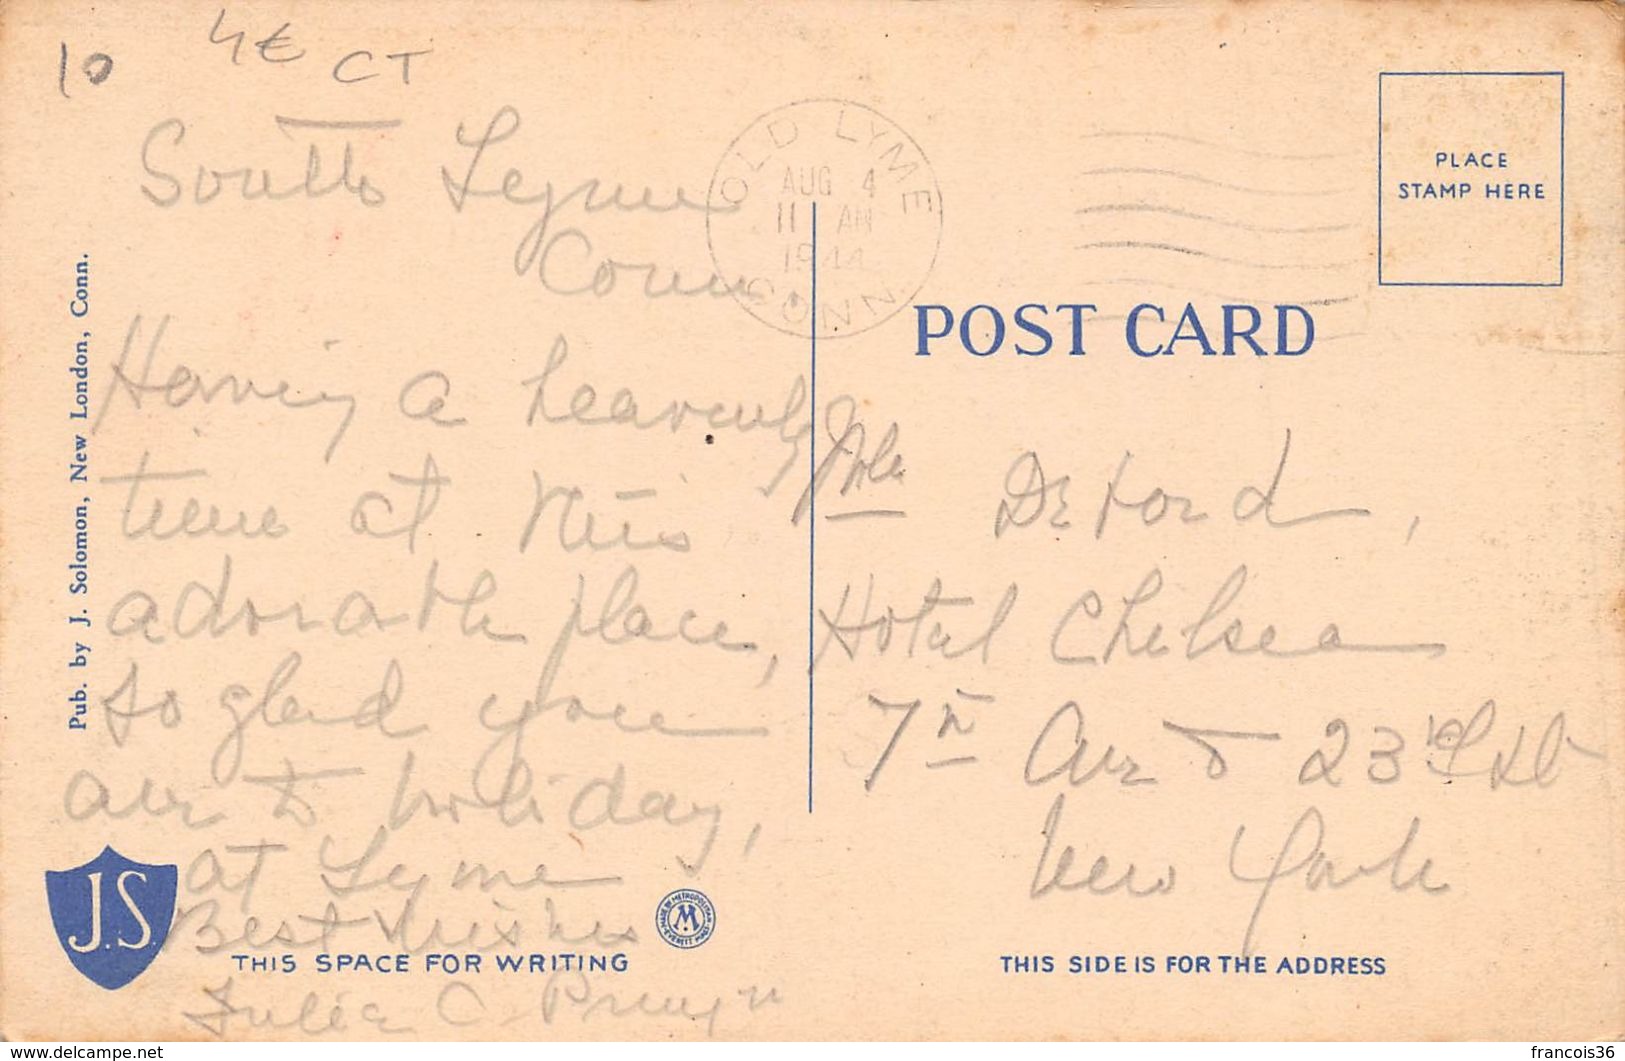 10
4€ CT
South Lyme
Conn.
Having a heavenly
time at this
adorable place,
so glad you
are to holiday,
at Lyme
Best Wishes
Julia C. Pruyn
Pub. by J. Solomon, New London, Conn.
J.S.
THIS SPACE FOR WRITING
MADE BY METROPOLITAN
M
EVERETT MASS.
OLD LYME
AUG 4
11 AM
1944
CONN.
PLACE
STAMP HERE
POST CARD
De Ford,
Hotel Chelsea
7th Ave & 23rd St
New York
THIS SIDE IS FOR THE ADDRESS
www.delcampe.net
francois36